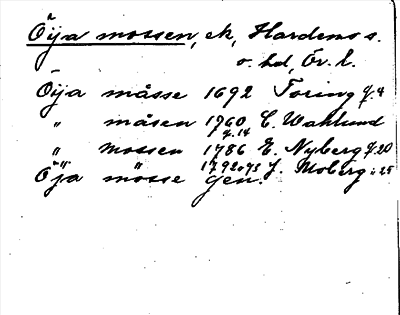 Öija mossen, ek, Hardemo s.
o. hd, Ör. l.
Öija måsse 1692 Toring f. 4
" måsen 1760 C. Wahlund
f. 14
" mossen 1786 E. Nyberg f. 20
Öja mosse 1792 o 93 J. Moberg : 25
gen.